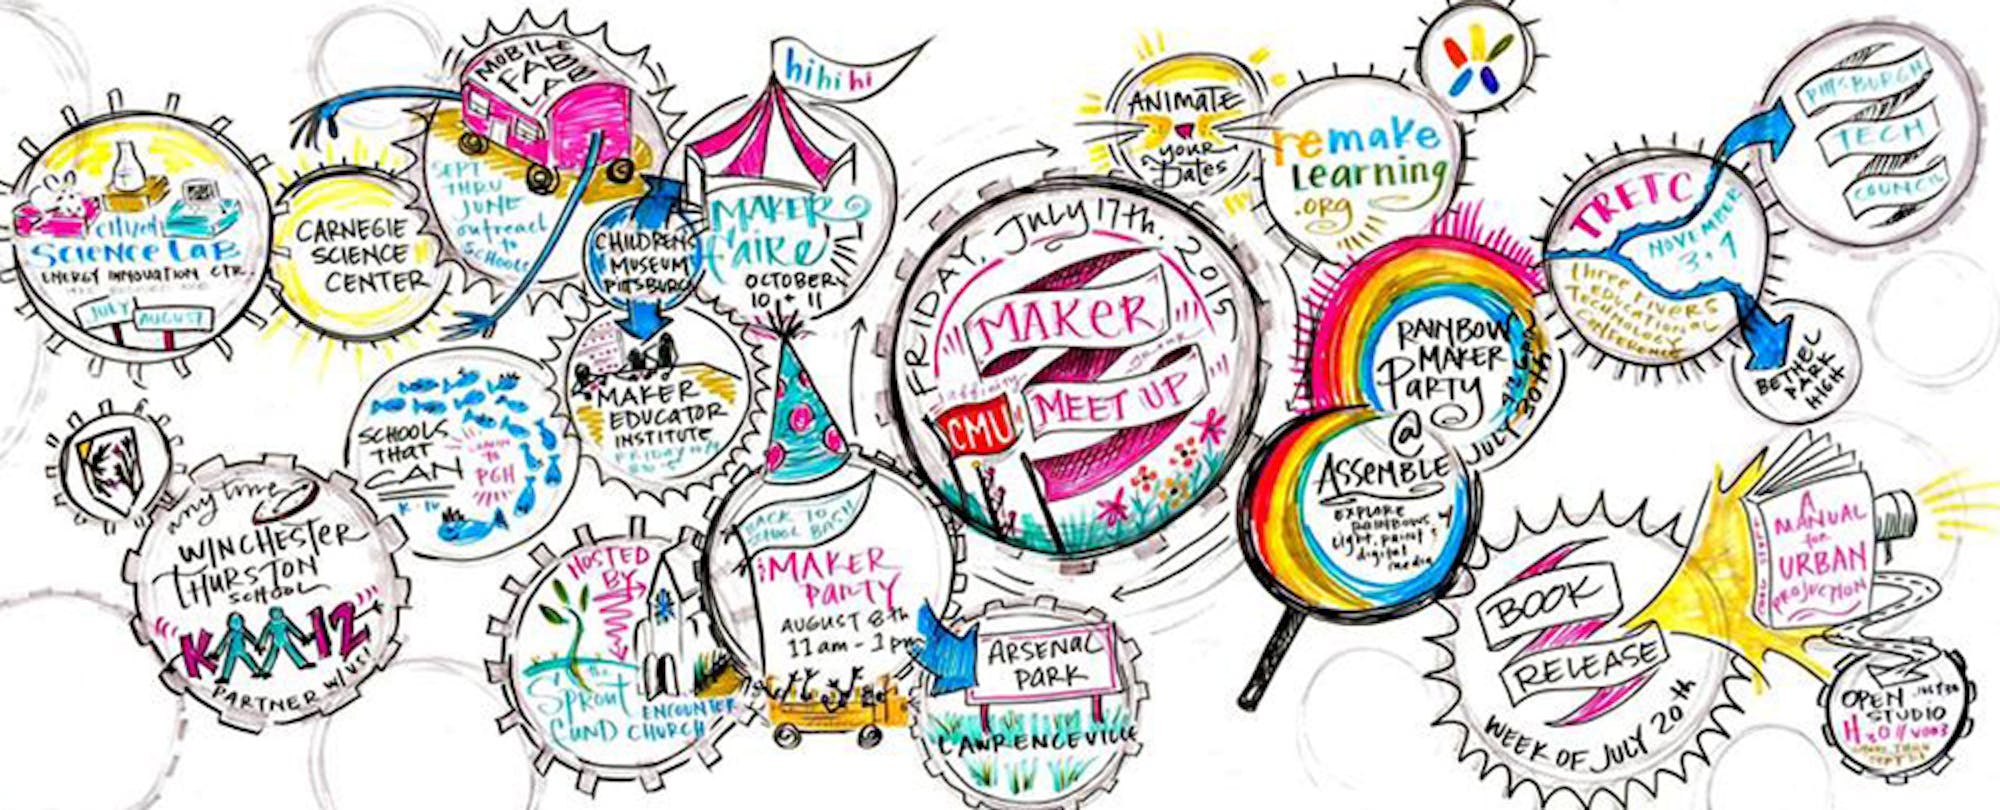 MOBILE
FAB
LA
SEPT
THRU
JUNE
outreach
to
SCHOOLS
citizen
SCIENCE LAB
ENERGY INNOVATION CTR.
JULY
AUGUST
CARNEGIE
SCIENCE
CENTER
CHILDRENS
MUSEUM
PITTSBURG
hi hi hi
MAKER
faire
OCTOBER
10 + 11
MAKER
EDUCATOR
INSTITUTE
FRIDAY
SCHOOLS
THAT
CAN
LEARN
TO
PGH
K-12
any time
WINCHESTER
THURSTON
SCHOOL
K 12
PARTNER W/US!
HOSTED
BY
the
Sprout
FUND
ENCOUNTER
CHURCH
BACK TO
SCHOOL BASH
MAKER
PARTY
AUGUST 8th
11am - 1pm
ARSENAL
PARK
LAWRENCEVILLE
FRIDAY, JULY 17th, 2015
MAKER
MEET UP
affinity
CMU
ANIMATE
your
dates
remake
Learning
.org
RAINBOW
MAKER
PARTY
JULY 30th
@
ASSEMBLE
EXPLORE
RAINBOWS
light, paint +
digital
media
TRETC
NOVEMBER
three rivers
EDUCATIONAL
TECHNOLOGY
CONFERENCE
PITTSBURGH
TECH
COUNCIL
BETHEL
PARK
HIGH
BOOK
RELEASE
WEEK OF JULY 20th
A
MANUAL
for
URBAN
PROJECTION
OPEN
STUDIO